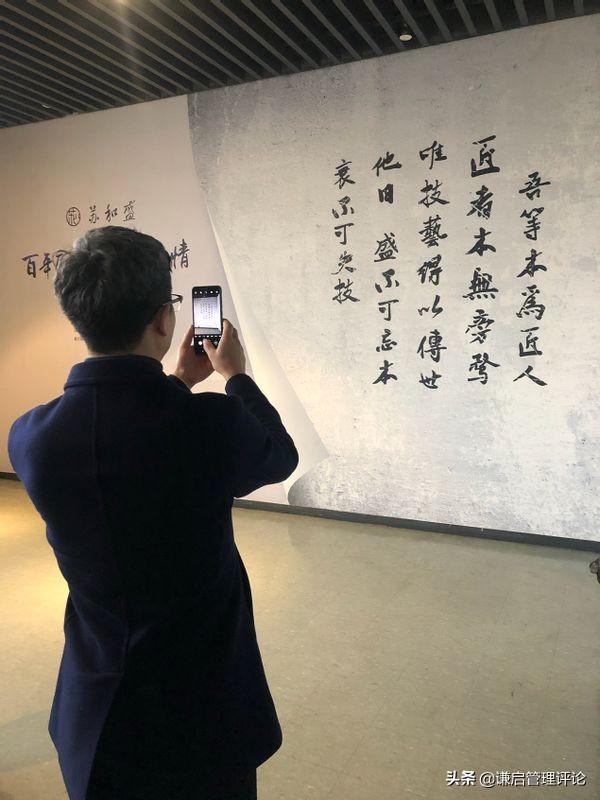 苏和盛
百年
情
吾等本爲匠人
匠者本無旁骛
唯技藝得以傳世
他日 盛不可忘本
衰不可失技
头条 @谦启管理评论